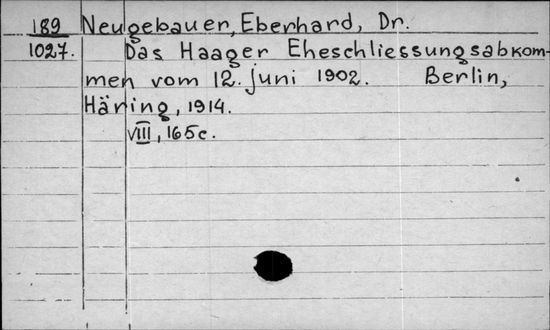 189 Neugebauer, Eberhard, Dr.
1027. Das Haager Eheschliessungsabkom-
men vom 12. juni 1902. Berlin,
Häring, 1914.
VIII, 165c.